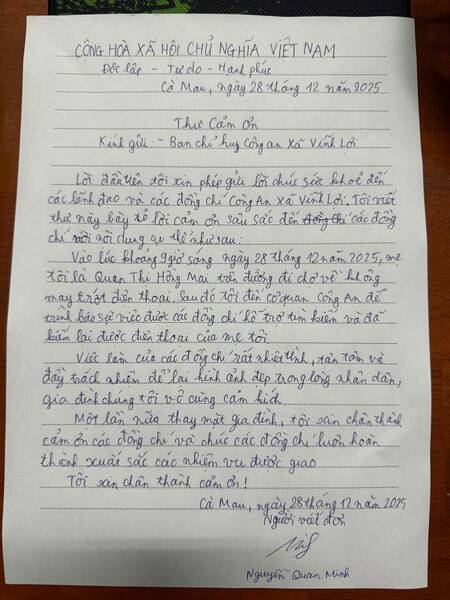 CỘNG HOÀ XÃ HỘI CHỦ NGHĨA VIỆT NAM
Độc lập - Tự do - Hạnh phúc
Cà Mau, ngày 28 tháng 12 năm 2025
Thư Cảm ơn
Kính gửi: - Ban chỉ huy công an xã Vĩnh Lợi
Lời đầu tiên tôi xin phép gửi lời chúc sức khoẻ đến
các lãnh đạo và các đồng chí Công An xã Vĩnh Lợi. Tôi viết
thư này bày tỏ lời cảm ơn sâu sắc đến các đồng
chí với nội dung cụ thể như sau:
Vào lúc khoảng 9 giờ sáng ngày 28 tháng 12 năm 2025, mẹ
tôi là Quan Thị Hồng Mai trên đường đi chợ về không
may rớt điện thoại. sau đó tôi đến cơ quan công An để
trình báo sự việc được các đồng chí hỗ trợ tìm kiếm và đã
kiếm lại được điện thoại của mẹ tôi.
Việc làm của các đồng chí rất nhiệt tình, tận tâm và
đầy trách nhiên để lại hình ảnh đẹp trong lòng nhân dân,
gia đình chúng tôi vô cùng cảm kích.
Một lần nữa thay mặt gia đình, tôi xin chân thành
cảm ơn các đồng chí và chúc các đồng chí luôn hoàn
thành xuất sắc các nhiệm vụ được giao
Tôi xin chân thành cảm ơn!
Cà Mau, ngày 28 tháng 12 năm 2025
Người viết đơn
Nguyễn Quan Minh